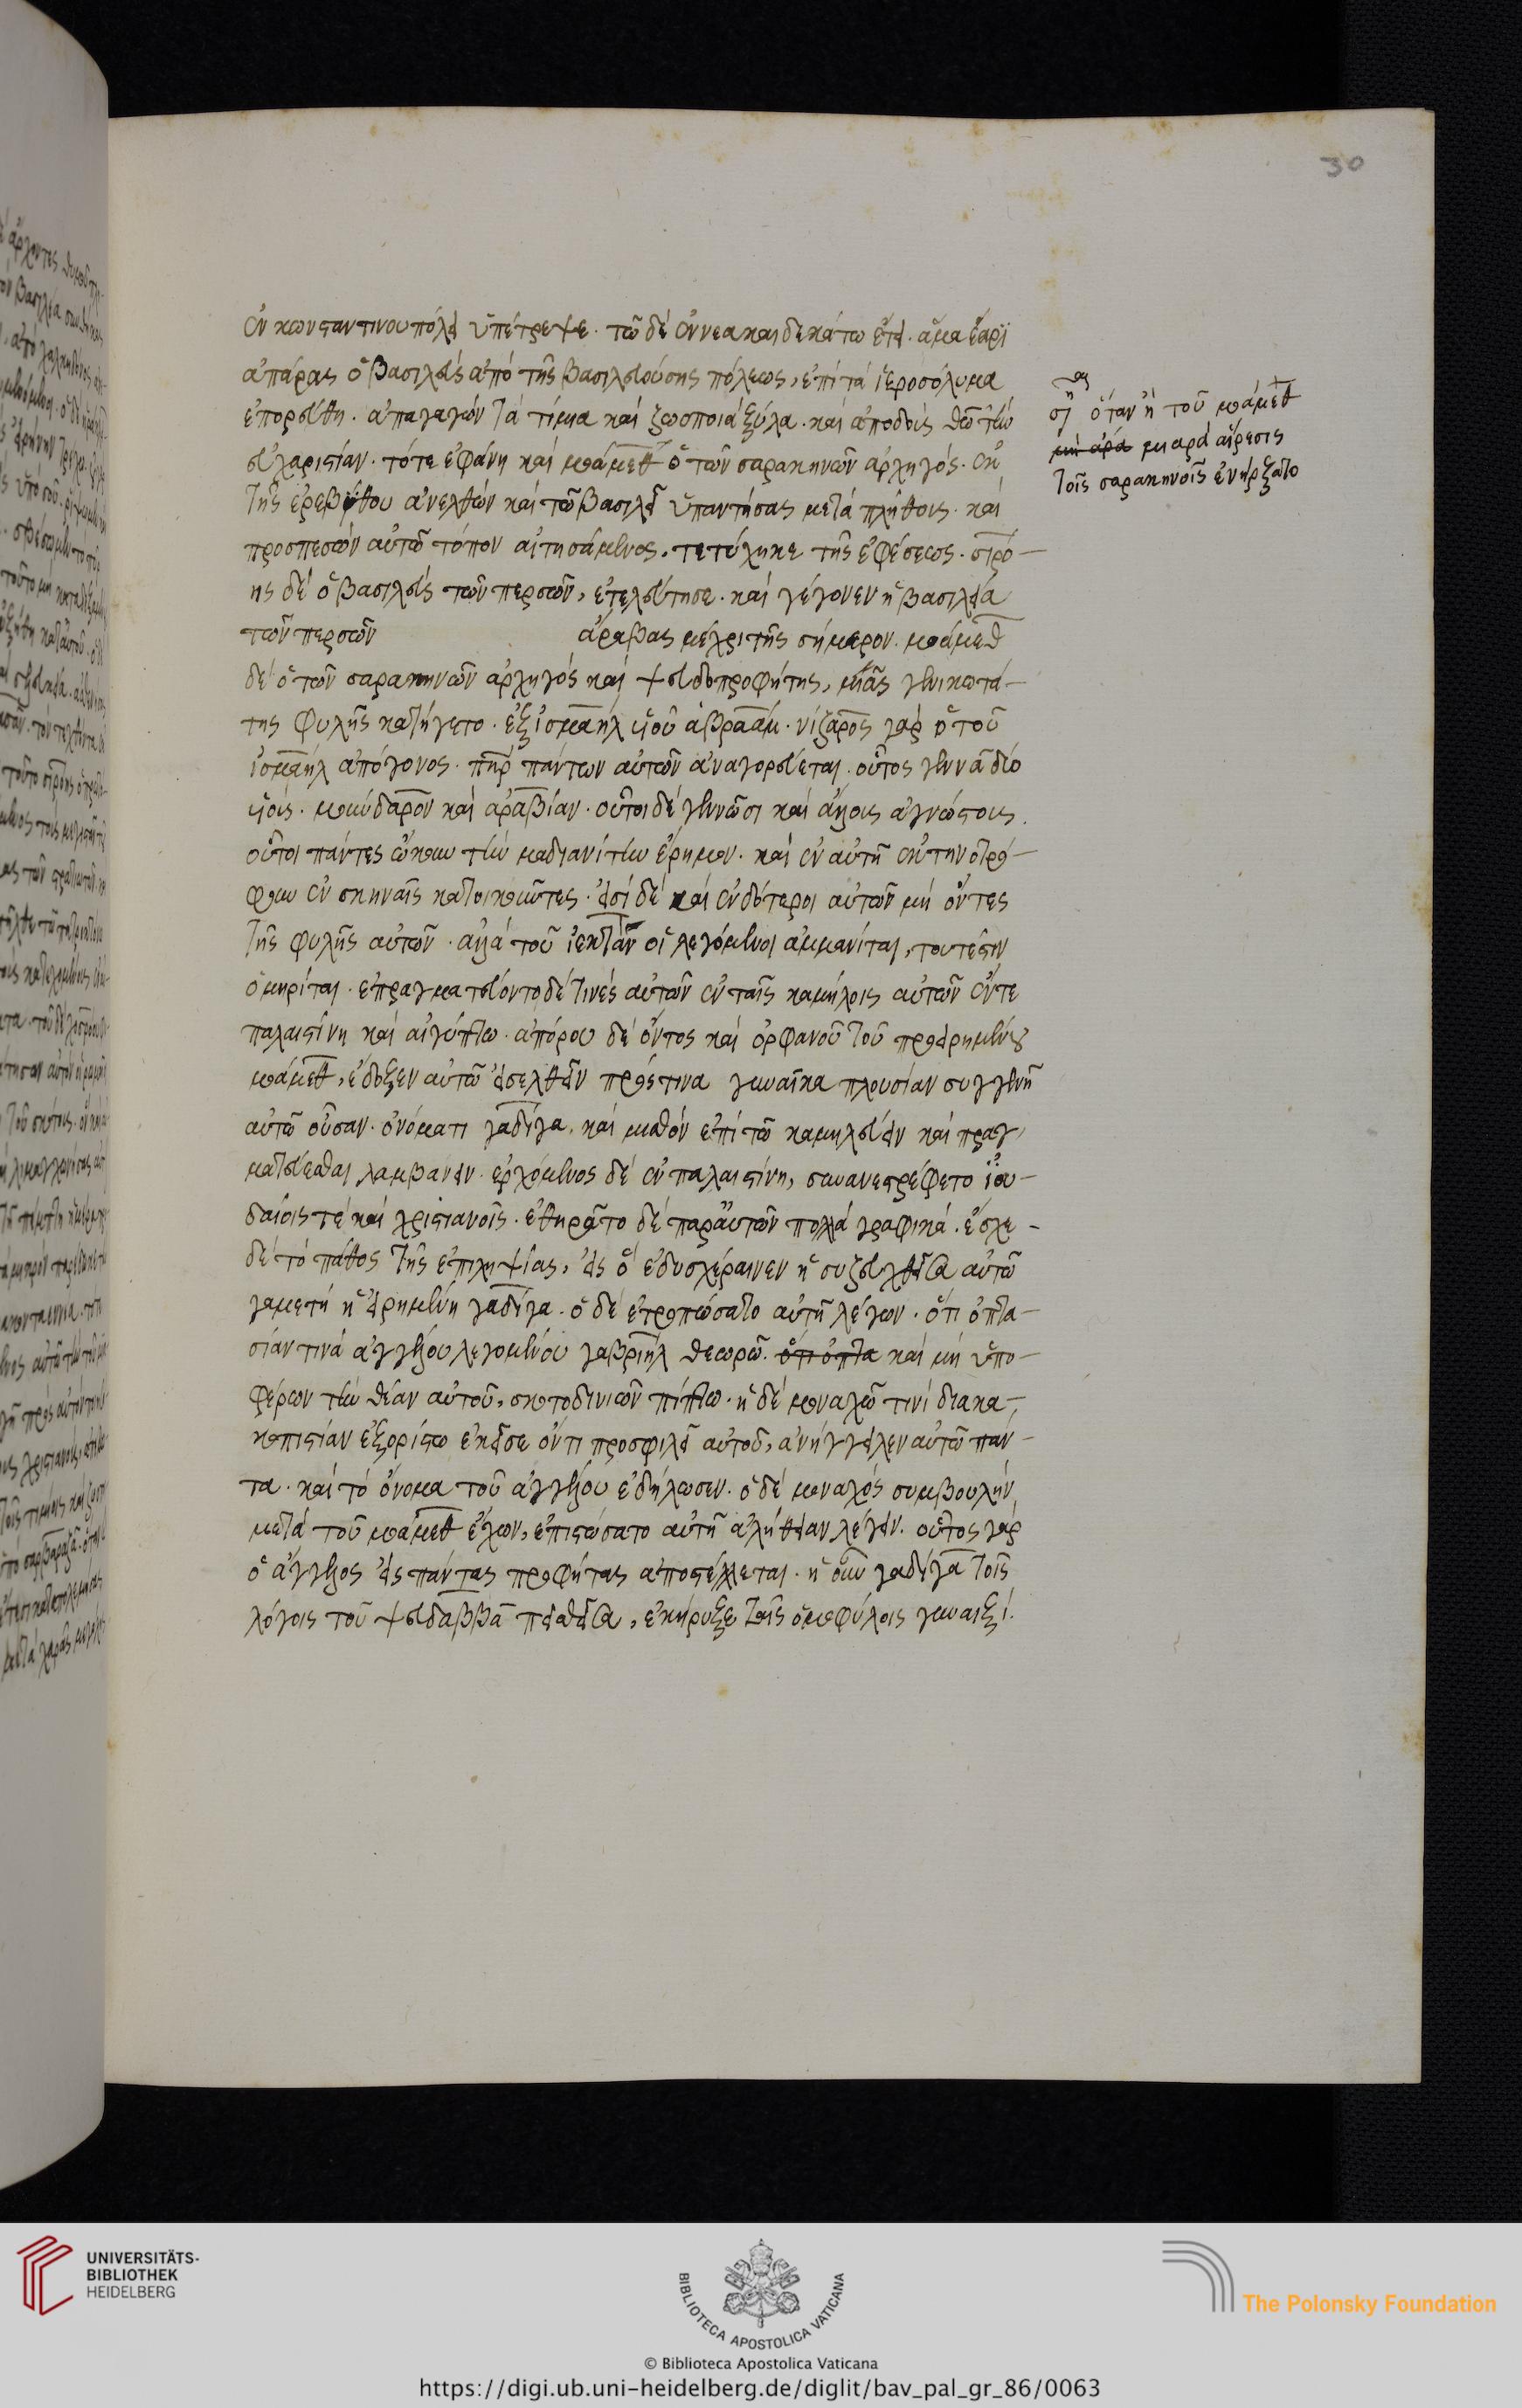 30
ἐν κωνσταντινουπόλει ὑπέστρεψε. τῶ δὲ ἐννεακαιδεκάτω ἔτει. ἅμα ἔαρι
ἀπάρας ὁ βασιλεὺς ἀπὸ τῆς βασιλευούσης πόλεως, ἐπὶ τὰ ἱεροσόλυμα
ἐπορεύθη. ἀπαγαγὼν τὰ τίμια καὶ ζωοποιὰ ξύλα. καὶ ἀποδοὺς θεῶ τὴν
εὐχαριστίαν. τότε ἐφάνη καὶ μουάμεθ ὁ τῶν σαρακηνῶν ἀρχηγός. ἐκ
τῆς ἐρεβύθου ἀνελθὼν καὶ τῶ βασιλεῖ ὑπαντήσας μετὰ πλήθους. καὶ
προσπεσὼν αὐτῶ τόπον αἰτησάμενος. τετύχηκε τῆς ἐφέσεως. σιρό-
ης δὲ ὁ βασιλεὺς τῶν περσῶν, ἐτελεύτησε. καὶ γέγονεν ἡ βασιλεία
τῶν περσῶν ἄραβας μέχρι τῆς σήμερον. μουάμεθ
δὲ ὁ τῶν σαρακηνῶν ἀρχηγὸς καὶ ψευδοπροφήτης, μιᾶς γενικωτά-
της φυλῆς κατήγετο. ἐξ ἰσμαὴλ υἱοῦ ἀβραάμ. νίζαρος γὰρ ὁ τοῦ
ἰσμαὴλ ἀπόγονος. πὴρ πάντων αὐτῶν ἀναγορεύεται. οὗτος γεννᾶ δύο
υἱούς. μούνδαρον καὶ ἀραβίαν. οὗτοι δὲ γεννῶσι καὶ ἄλλους ἀγνώστους.
οὗτοι πάντες ὤκουν τὴν μαδιανίτην ἔρημον. καὶ ἐν αὐτῆ ἐκτηνοτρό-
φουν ἐν σκηναῖς κατοικοῦντες. εἰσὶ δὲ καὶ ἐνδότεροι αὐτῶν μὴ ὄντες
τῆς φυλῆς αὐτῶν. ἀλλὰ τοῦ ἰεκτὰν οἱ λεγόμενοι ἀμμανίται, τουτέστιν
ὁμηρίται. ἐπραγματεύοντο δὲ τινὲς αὐτῶν ἐν ταῖς καμήλοις αὐτῶν ἔντε
παλαιστίνη καὶ αἰγύπτω. ἀπόρου δὲ ὄντος καὶ ὀρφανοῦ τοῦ προειρημένου
μουάμεθ, ἔδοξεν αὐτῶ εἰσελθεῖν πρός τινα γυναῖκα πλουσίαν συγγενῆ
αὐτῶ οὖσαν. ὀνόματι χαδίγα. καὶ μισθὸν ἐπὶ τῶ καμηλεύειν καὶ πραγ-
ματεύεσθαι λαμβάνειν. ἐρχόμενος δὲ ἐν παλαιστίνη, συνανεστρέφετο ἰου-
δαίοις τὲ καὶ χριστιανοῖς. ἐθηρᾶτο δὲ παρ' αὐτῶν πολλὰ γραφικά. ἔσχε-
δὲ τὸ πάθος τῆς ἐπιληψίας, εἰς ὃ ἐδυσχέραινεν ἡ συζευχθεῖσα αὐτῶ
γαμετὴ ἡ εἰρημένη χαδίγα. ὁ δὲ ἐτροπώσατο αὐτῆ λέγων. ὅτι ὀπτα-
σίαν τινὰ ἀγγέλου λεγομένου γαβριὴλ θεωρῶ. ὅτι ὀπτα καὶ μὴ ὑπο-
φέρων τὴν θέαν αὐτοῦ, σκοτοδινιῶν πίπτω. ἡ δὲ μοναχῶ τινὶ διακα-
κοπιστίαν ἐξορίστω ἐκεῖσε ὄντι προσφιλεῖ αὐτοῦ, ἀνήγγειλεν αὐτῶ πάν-
τα. καὶ τὸ ὄνομα τοῦ ἀγγέλου ἐδήλωσεν. ὁ δὲ μοναχὸς συμβουλὴν
μετὰ τοῦ μουάμεθ ἔχων, ἐπιστώσατο αὐτῆ ἀλήθειαν λέγειν. οὗτος γὰρ
ὁ ἄγγελος εἰς πάντας προφήτας ἀποστέλλεται. ἡ οὖν χαδίγα τοῖς
λόγοις τοῦ ψευδαββᾶ πεισθεῖσα, ἐκήρυξε ταῖς ὁμοφύλοις γυναιξί.
ση ὅταν ἡ τοῦ μουάμεθ
μὴ ἀρὰ μιαρὰ αἵρεσις
τοῖς σαρακηνοῖς ἐνήρξατο
UNIVERSITÄTS-
BIBLIOTHEK
HEIDELBERG
BIBLIOTECA APOSTOLICA VATICANA
The Polonsky Foundation
© Biblioteca Apostolica Vaticana
https://digi.ub.uni-heidelberg.de/diglit/bav_pal_gr_86/0063